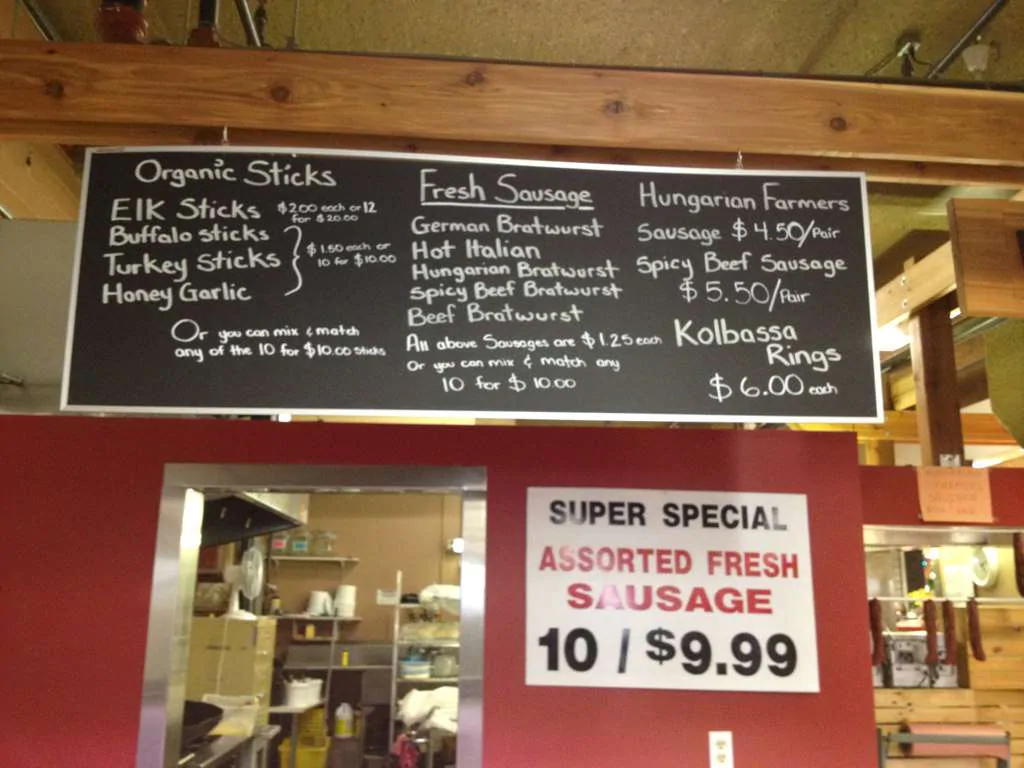 Organic Sticks
Elk Sticks $2.00 each or 12
for $20.00
Buffalo sticks
Turkey Sticks
Honey Garlic
$1.50 each or
10 for $10.00
Or you can mix & match
any of the 10 for $10.00 sticks
Fresh Sausage
German Bratwurst
Hot Italian
Hungarian Bratwurst
Spicy Beef Bratwurst
Beef Bratwurst
All above Sausages are $1.25 each
Or you can mix & match any
10 for $10.00
Hungarian Farmers
Sausage $4.50/Pair
Spicy Beef Sausage
$5.50/Pair
Kolbassa
Rings
$6.00 each
SUPER SPECIAL
ASSORTED FRESH
SAUSAGE
10 / $9.99